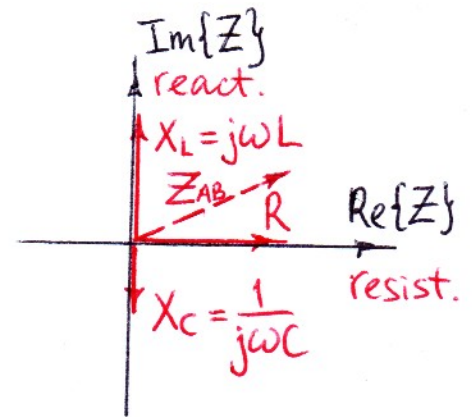 Im{Z}
react.
X_L = jωL
Z_AB
R
Re{Z}
resist.
X_C = 1/jωC